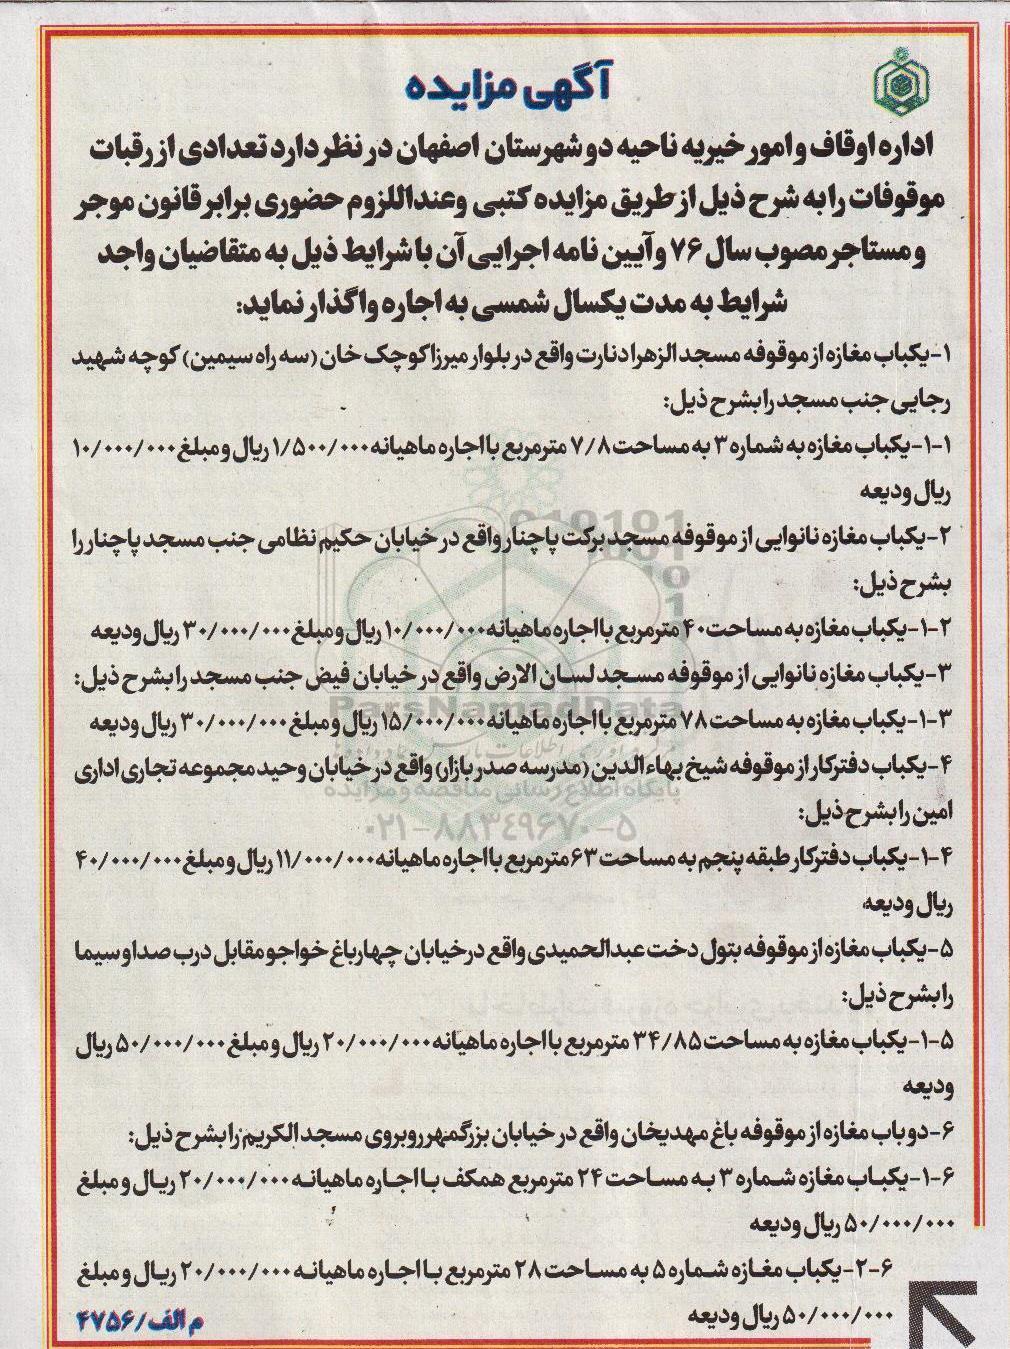 آگهی مزایده
اداره اوقاف و امور خیریه ناحیه دو شهرستان اصفهان در نظر دارد تعدادی از رقبات
موقوفات را به شرح ذیل از طریق مزایده کتبی وعنداللزوم حضوری برابر قانون موجر
و مستاجر مصوب سال ۷۶ و آیین نامه اجرایی آن با شرایط ذیل به متقاضیان واجد
شرایط به مدت یکسال شمسی به اجاره واگذار نماید:
۱-یکباب مغازه از موقوفه مسجد الزهرا دنارت واقع در بلوار میرزا کوچک خان (سه راه سیمین) کوچه شهید
رجایی جنب مسجد را بشرح ذیل:
۱-۱-یکباب مغازه به شماره ۳ به مساحت ۷/۸ مترمربع با اجاره ماهیانه ۱/۵۰۰/۰۰۰ ریال و مبلغ ۱۰/۰۰۰/۰۰۰
ریال ودیعه
۲-یکباب مغازه نانوایی از موقوفه مسجد برکت پاچنار واقع در خیابان حکیم نظامی جنب مسجد پاچنار را
بشرح ذیل:
۲-۱-یکباب مغازه به مساحت ۴۰ مترمربع با اجاره ماهیانه ۱۰/۰۰۰/۰۰۰ ریال و مبلغ ۳۰/۰۰۰/۰۰۰ ریال ودیعه
۳-یکباب مغازه نانوایی از موقوفه مسجد لسان الارض واقع در خیابان فیض جنب مسجد را بشرح ذیل:
۳-۱-یکباب مغازه به مساحت ۷۸ مترمربع با اجاره ماهیانه ۱۵/۰۰۰/۰۰۰ ریال و مبلغ ۳۰/۰۰۰/۰۰۰ ریال ودیعه
ParsNamadData
۴-یکباب دفترکار از موقوفه شیخ بهاءالدین (مدرسه صدر بازار) واقع در خیابان وحید مجموعه تجاری اداری
پایگاه اطلاع رسانی مناقصه و مزایده
امین را بشرح ذیل:
۰۲۱-۸۸۳۴۹۶۷۰-۵
۴-۱-یکباب دفترکار طبقه پنجم به مساحت ۶۳ مترمربع با اجاره ماهیانه ۱۱/۰۰۰/۰۰۰ ریال و مبلغ ۴۰/۰۰۰/۰۰۰
ریال ودیعه
۵-یکباب مغازه از موقوفه بتول دخت عبدالحمیدی واقع درخیابان چهارباغ خواجو مقابل درب صدا و سیما
را بشرح ذیل:
۵-۱-یکباب مغازه به مساحت ۳۴/۸۵ مترمربع با اجاره ماهیانه ۲۰/۰۰۰/۰۰۰ ریال و مبلغ ۵۰/۰۰۰/۰۰۰ ریال
ودیعه
۶-دو باب مغازه از موقوفه باغ مهدیخان واقع در خیابان بزرگمهر روبروی مسجد الکریم را بشرح ذیل:
۶-۱-یکباب مغازه شماره ۳ به مساحت ۲۴ مترمربع همکف با اجاره ماهیانه ۲۰/۰۰۰/۰۰۰ ریال و مبلغ
۵۰/۰۰۰/۰۰۰ ریال ودیعه
۶-۲-یکباب مغازه شماره ۵ به مساحت ۲۸ مترمربع با اجاره ماهیانه ۲۰/۰۰۰/۰۰۰ ریال و مبلغ
۵۰/۰۰۰/۰۰۰ ریال ودیعه
م الف/۴۷۵۶